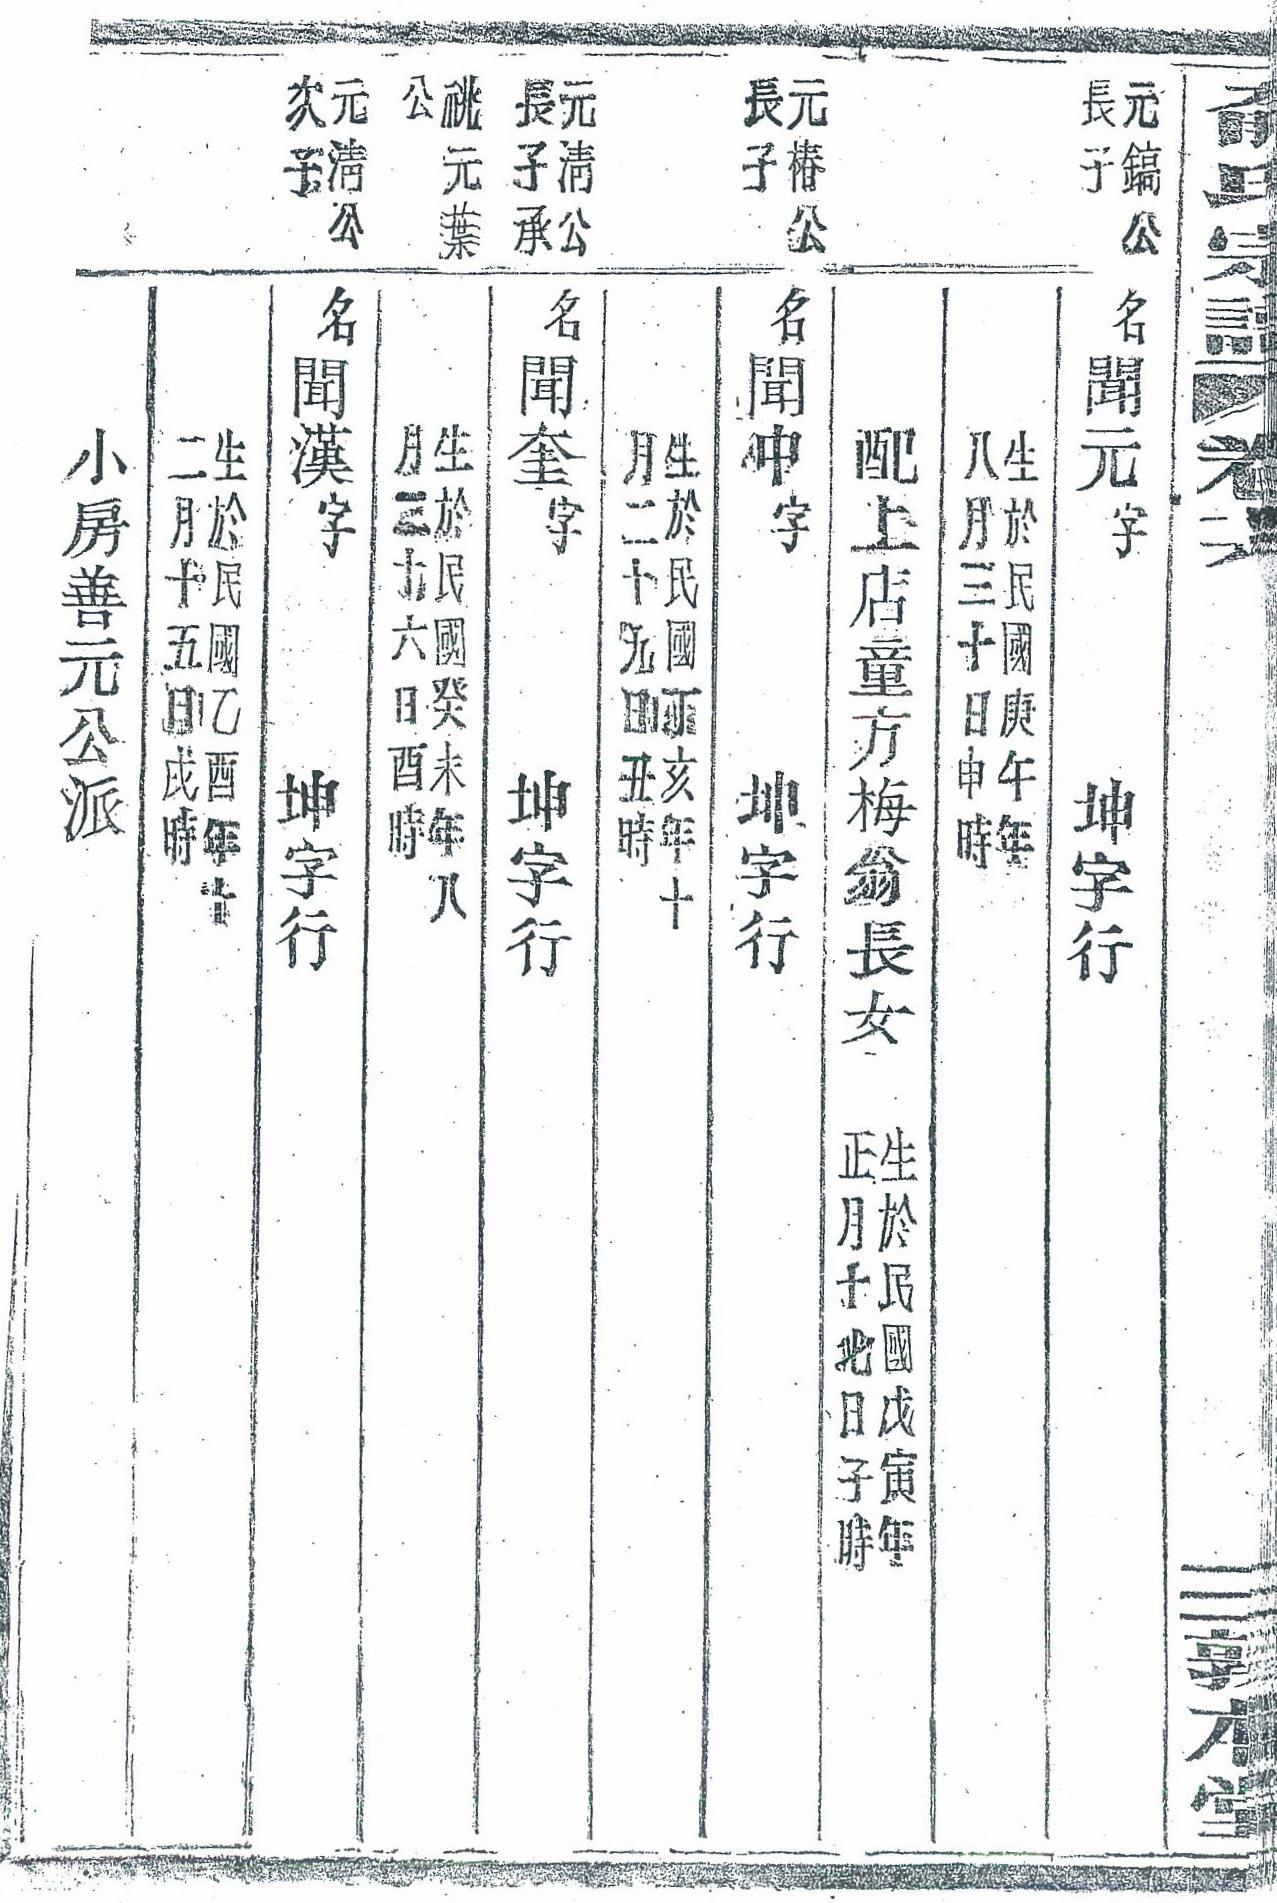 氏宗譜 卷六
元鎬公
長子
名聞元字 坤字行
生於民國庚午年
八月三十日申時
配上店童方梅翁長女
生於民國戊寅年
正月十九日子時
元椿公
長子
名聞中字 坤字行
生於民國丁亥年十
月二十九日丑時
元清公
長子承
祧元葉
公
名聞奎字 坤字行
生於民國癸未年八
月二十六日酉時
元清公
次子
名聞漢字 坤字行
生於民國乙酉年十
二月十五日戌時
小房善元公派
敦本堂